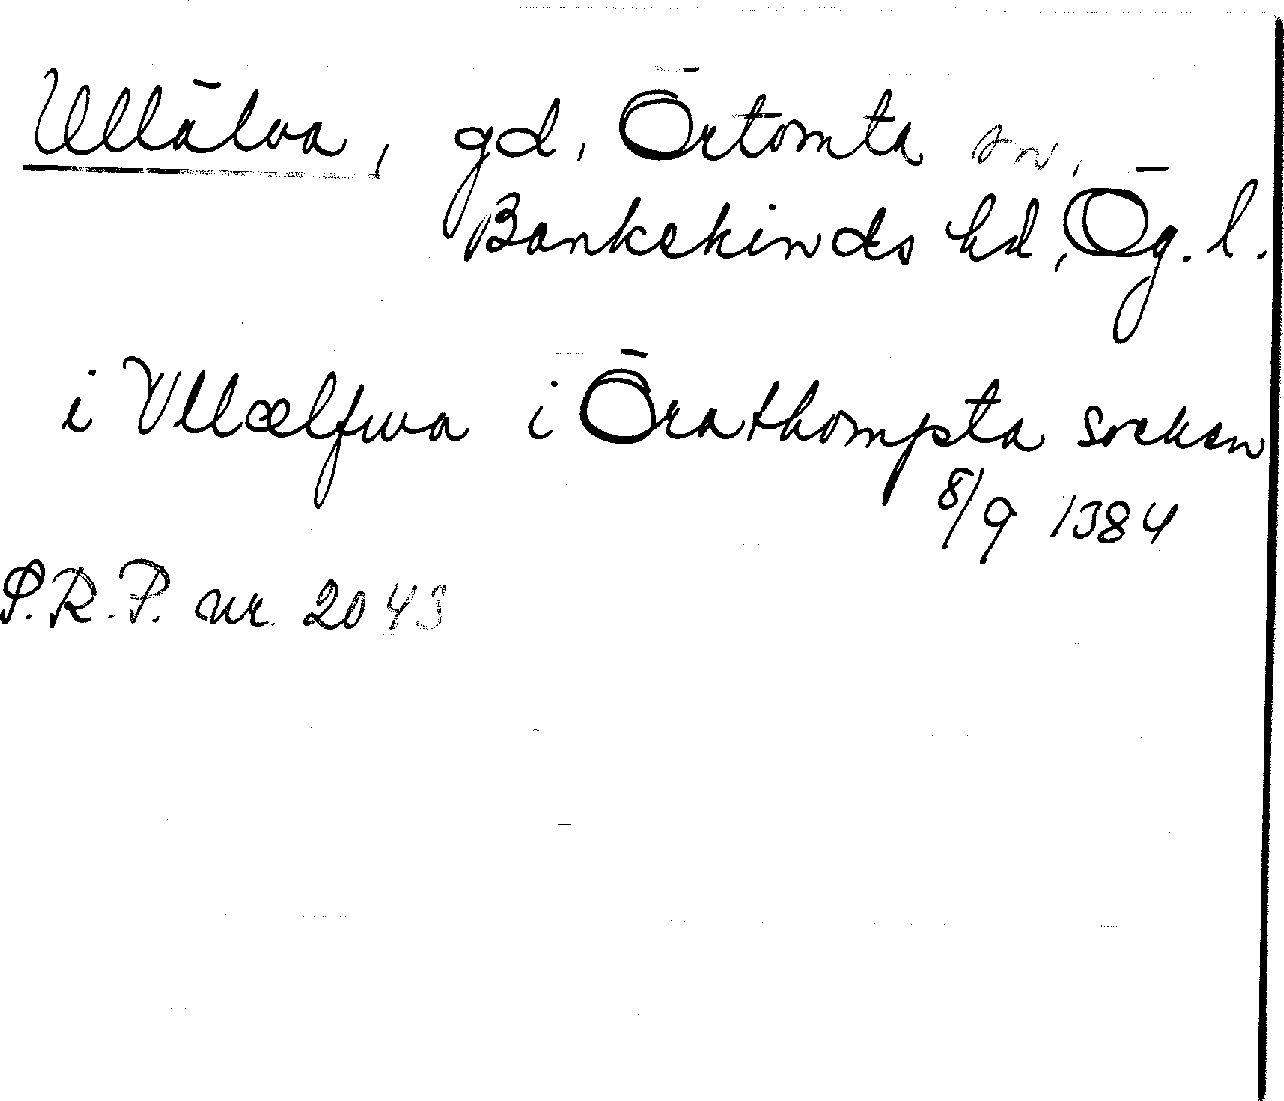 Ullälva, gd, Örtomta sn,
Bankekinds hd, Ög. l.
i Vllælfwa i Örathompta socken
8/9 1384
S.R.P. nr. 2043